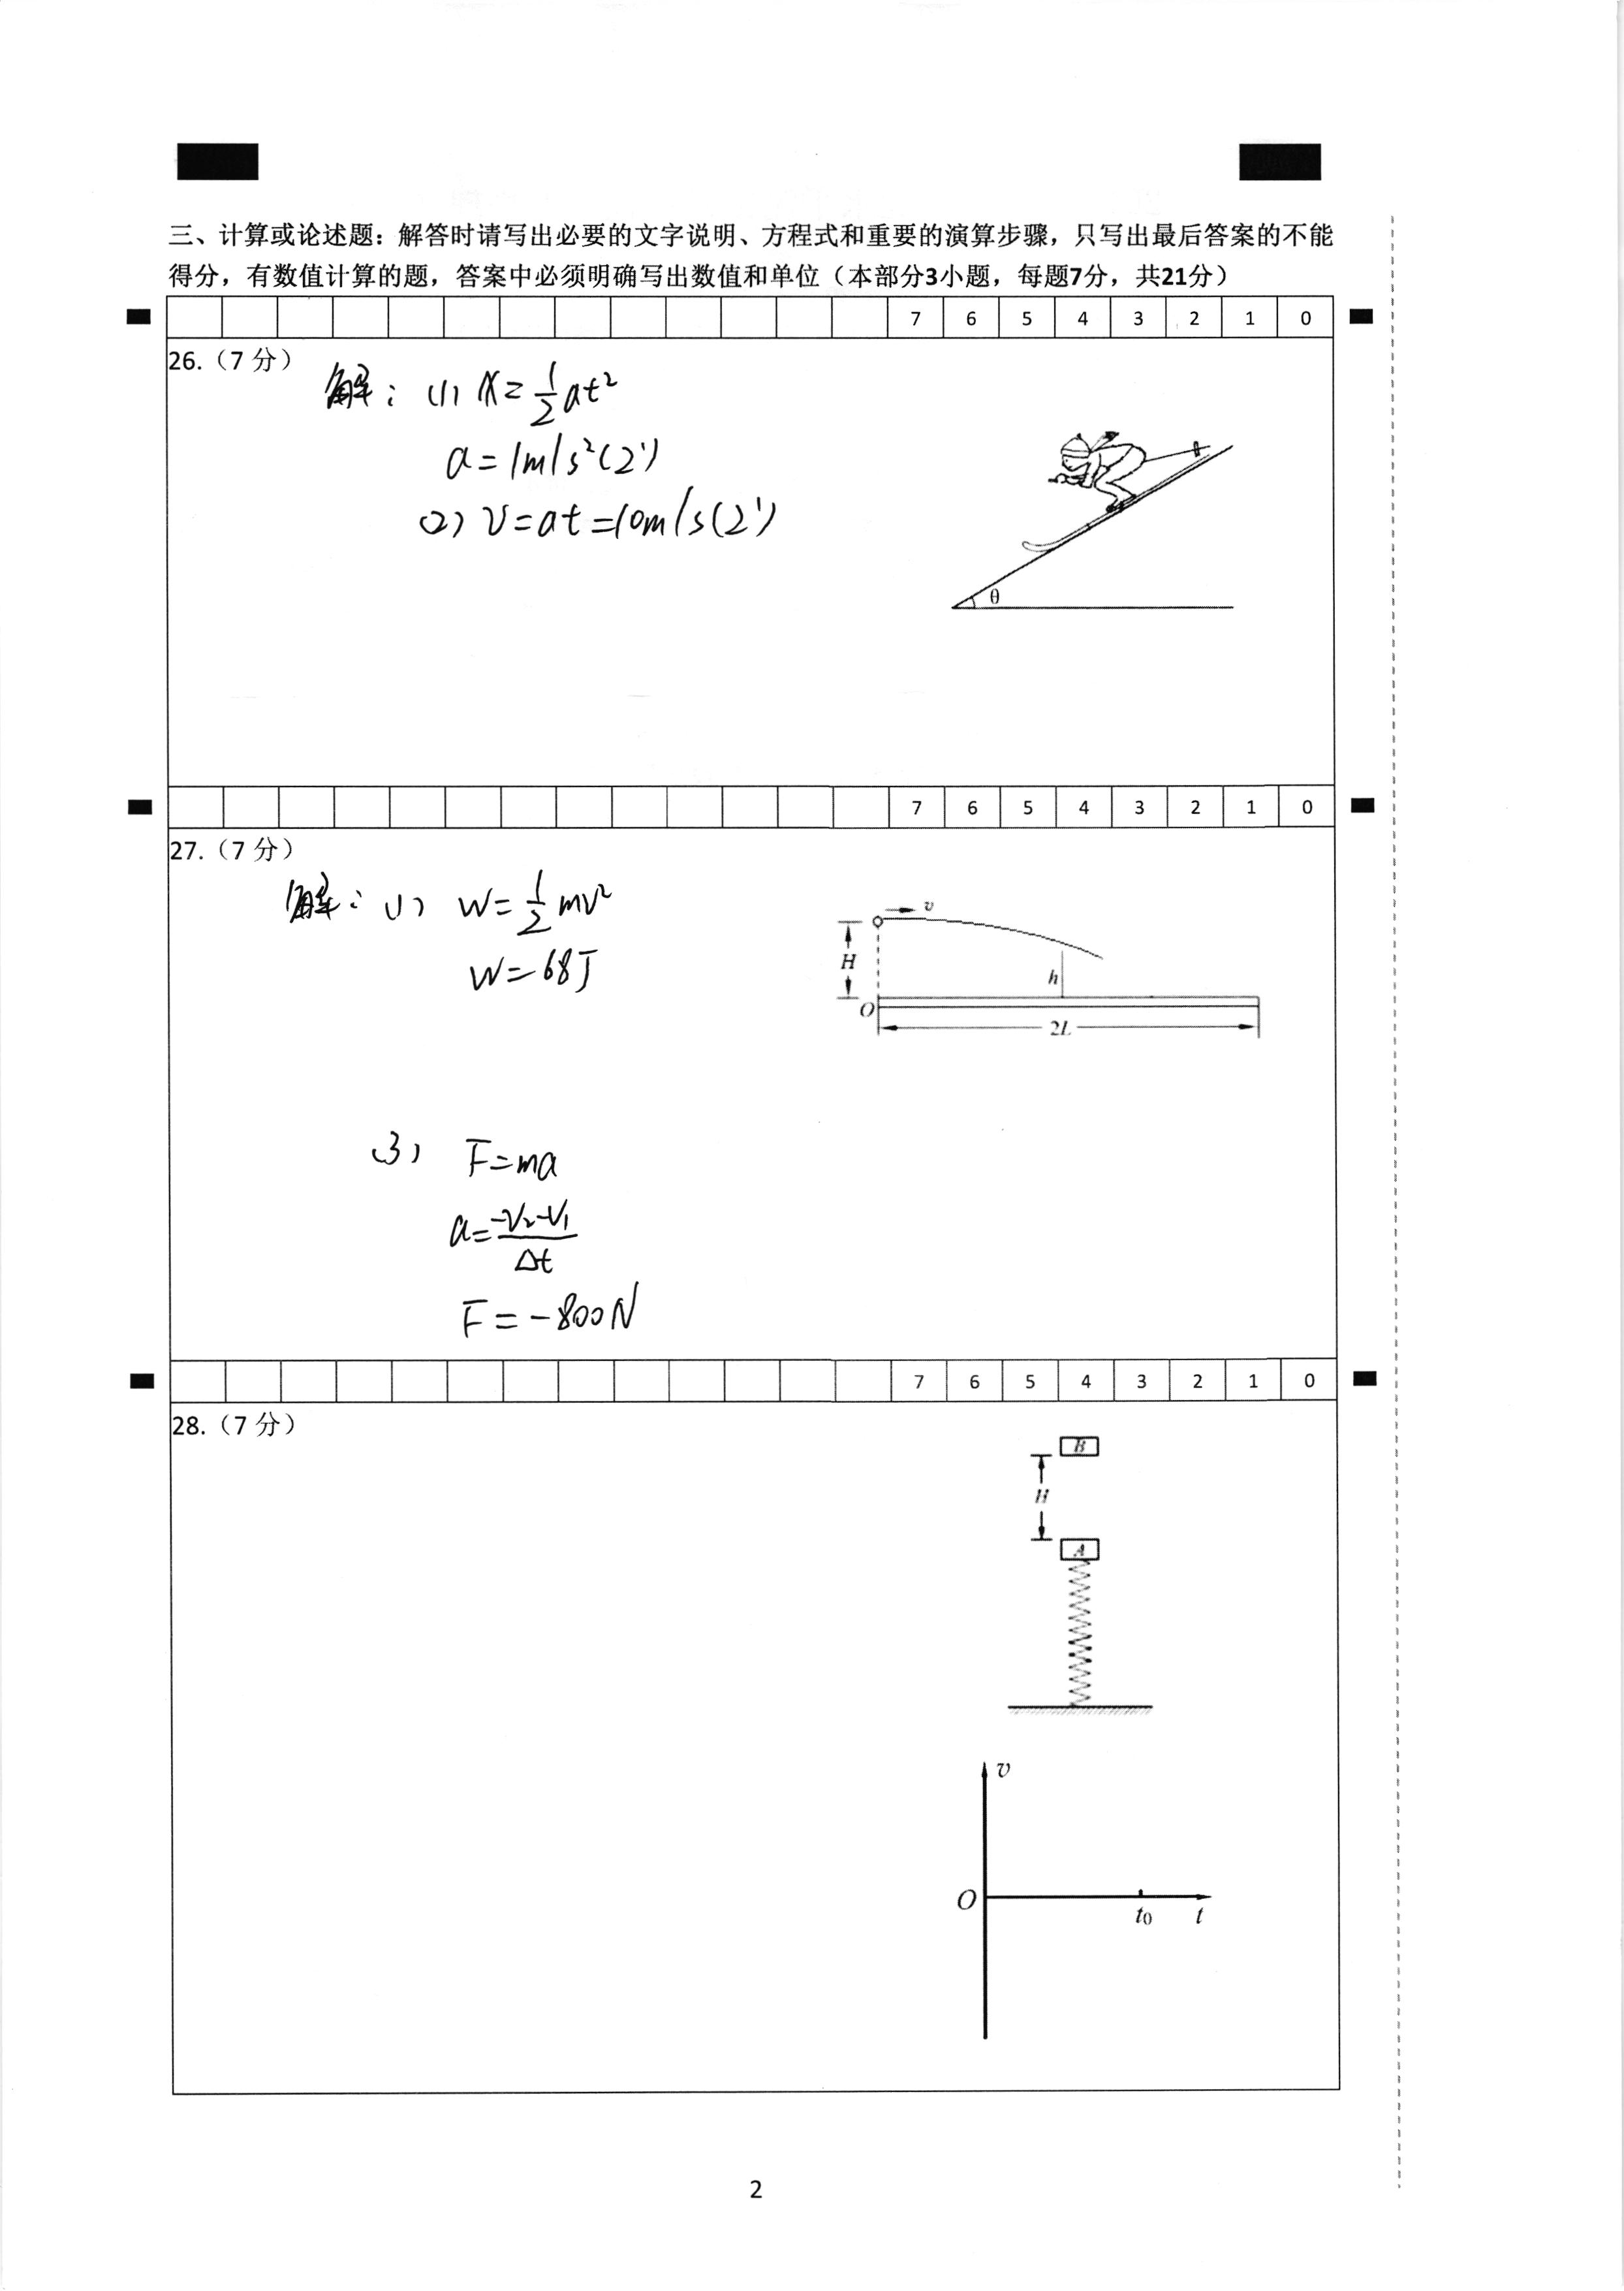 三、计算或论述题：解答时请写出必要的文字说明、方程式和重要的演算步骤，只写出最后答案的不能
得分，有数值计算的题，答案中必须明确写出数值和单位（本部分3小题，每题7分，共21分）
7 6 5 4 3 2 1 0
26.（7 分）
解：(1) x=1/2 at²
a=1m/s²(2')
(2) v=at=10m/s(2')
θ
7 6 5 4 3 2 1 0
27.（7 分）
解：(1) W=1/2 mv²
W=68J
v
H
h
O
2L
(3) F=ma
a=(-v₂-v₁)/Δt
F=-800N
7 6 5 4 3 2 1 0
28.（7 分）
B
H
A
v
O
t₀ t
2